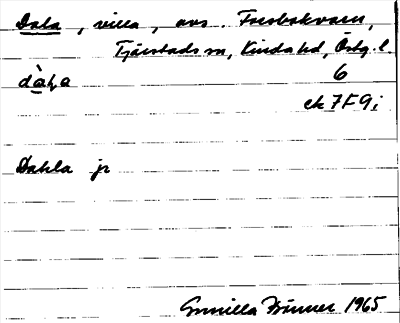 Dala, villa, avs. Forsbokvarn,
Tjärstads sn, Kinda hd, Östg. l.
dàla 6
ek 7F9i
Dahla jr
Gunilla Brunner 1965